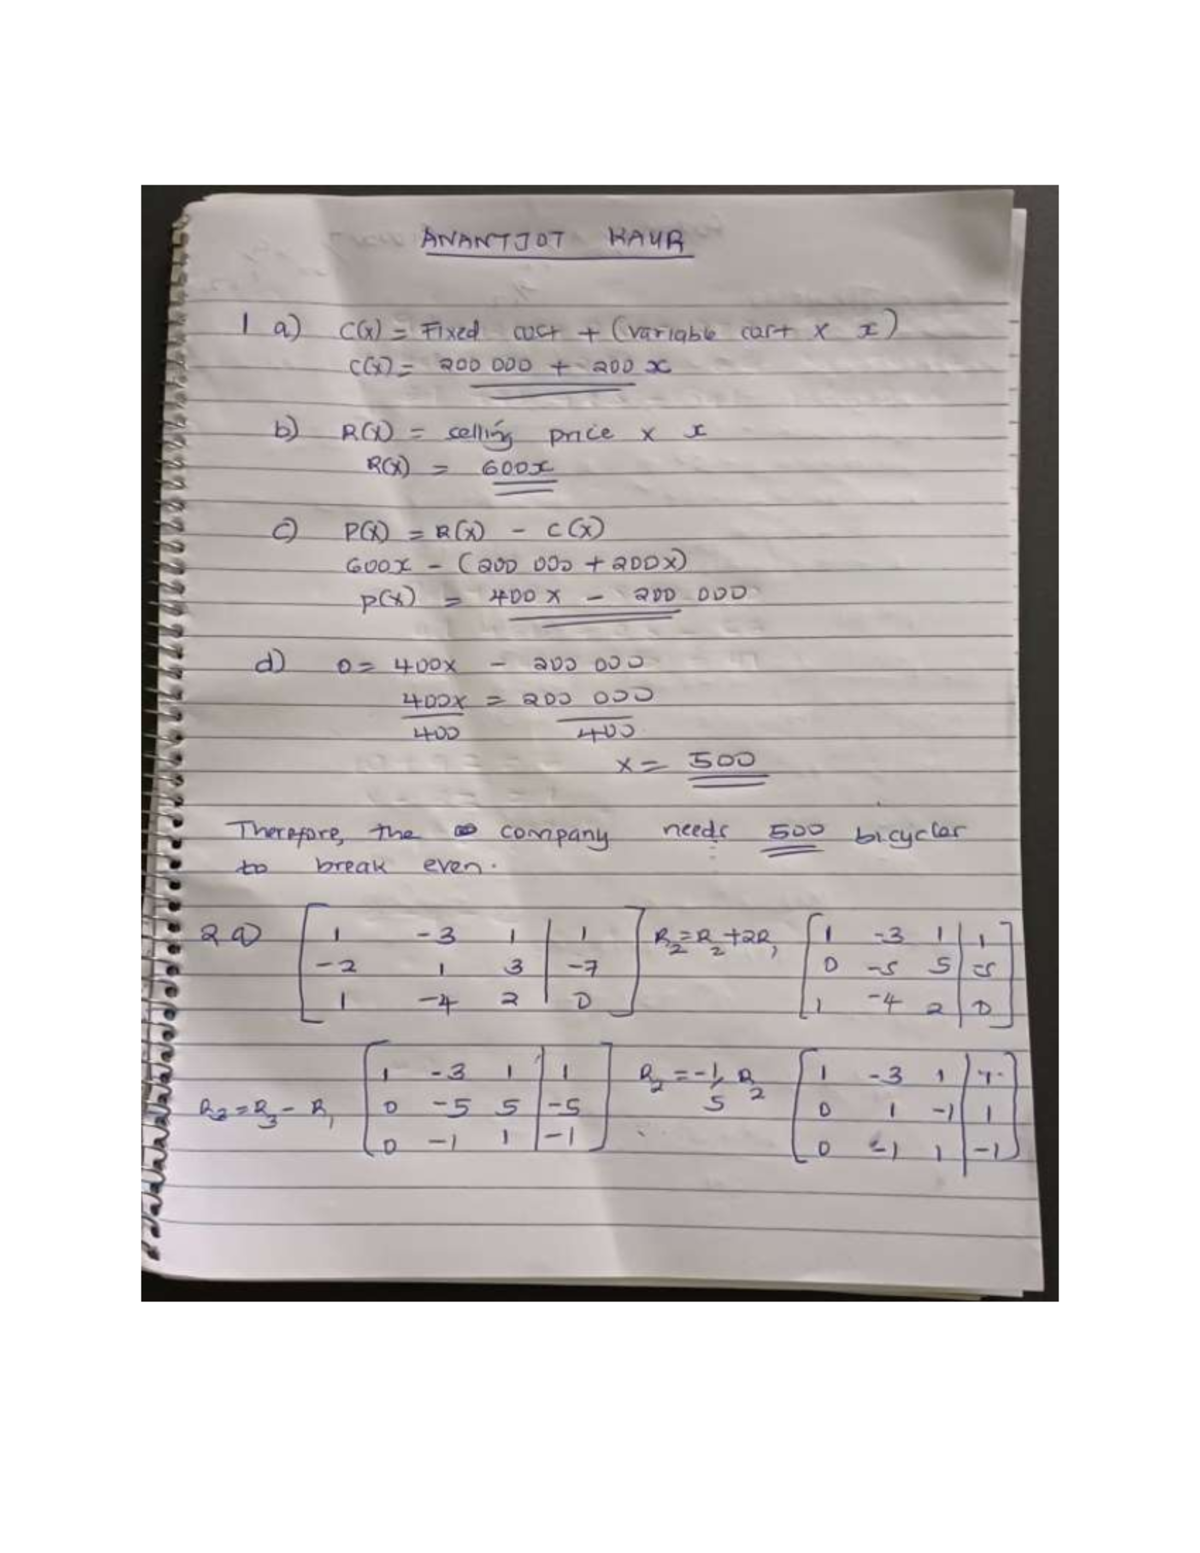 ANANTJOT KAUR
1 a) C(x) = Fixed cost + (variable cost × x)
C(x) = 200 000 + 200 x
b) R(x) = selling price × x
R(x) = 600x
c) P(x) = R(x) - C(x)
600x - (200 000 + 200x)
P(x) = 400x - 200 000
d) 0 = 400x - 200 000
400x = 200 000
400 400
x = 500
Therefore, the company needs 500 bicycles
to break even.
2 a) [ 1 -3 1 | 1 ] R2=R2+2R1 [ 1 -3 1 | 1 ]
[ -2 1 3 | -7 ] [ 0 -5 5 | -5 ]
[ 1 -4 2 | 0 ] [ 1 -4 2 | 0 ]
[ 1 -3 1 | 1 ] R2 = -1/5 R2 [ 1 -3 1 | 1 ]
R3=R3-R1 [ 0 -5 5 | -5 ] [ 0 1 -1 | 1 ]
[ 0 -1 1 | -1 ] [ 0 -1 1 | -1 ]